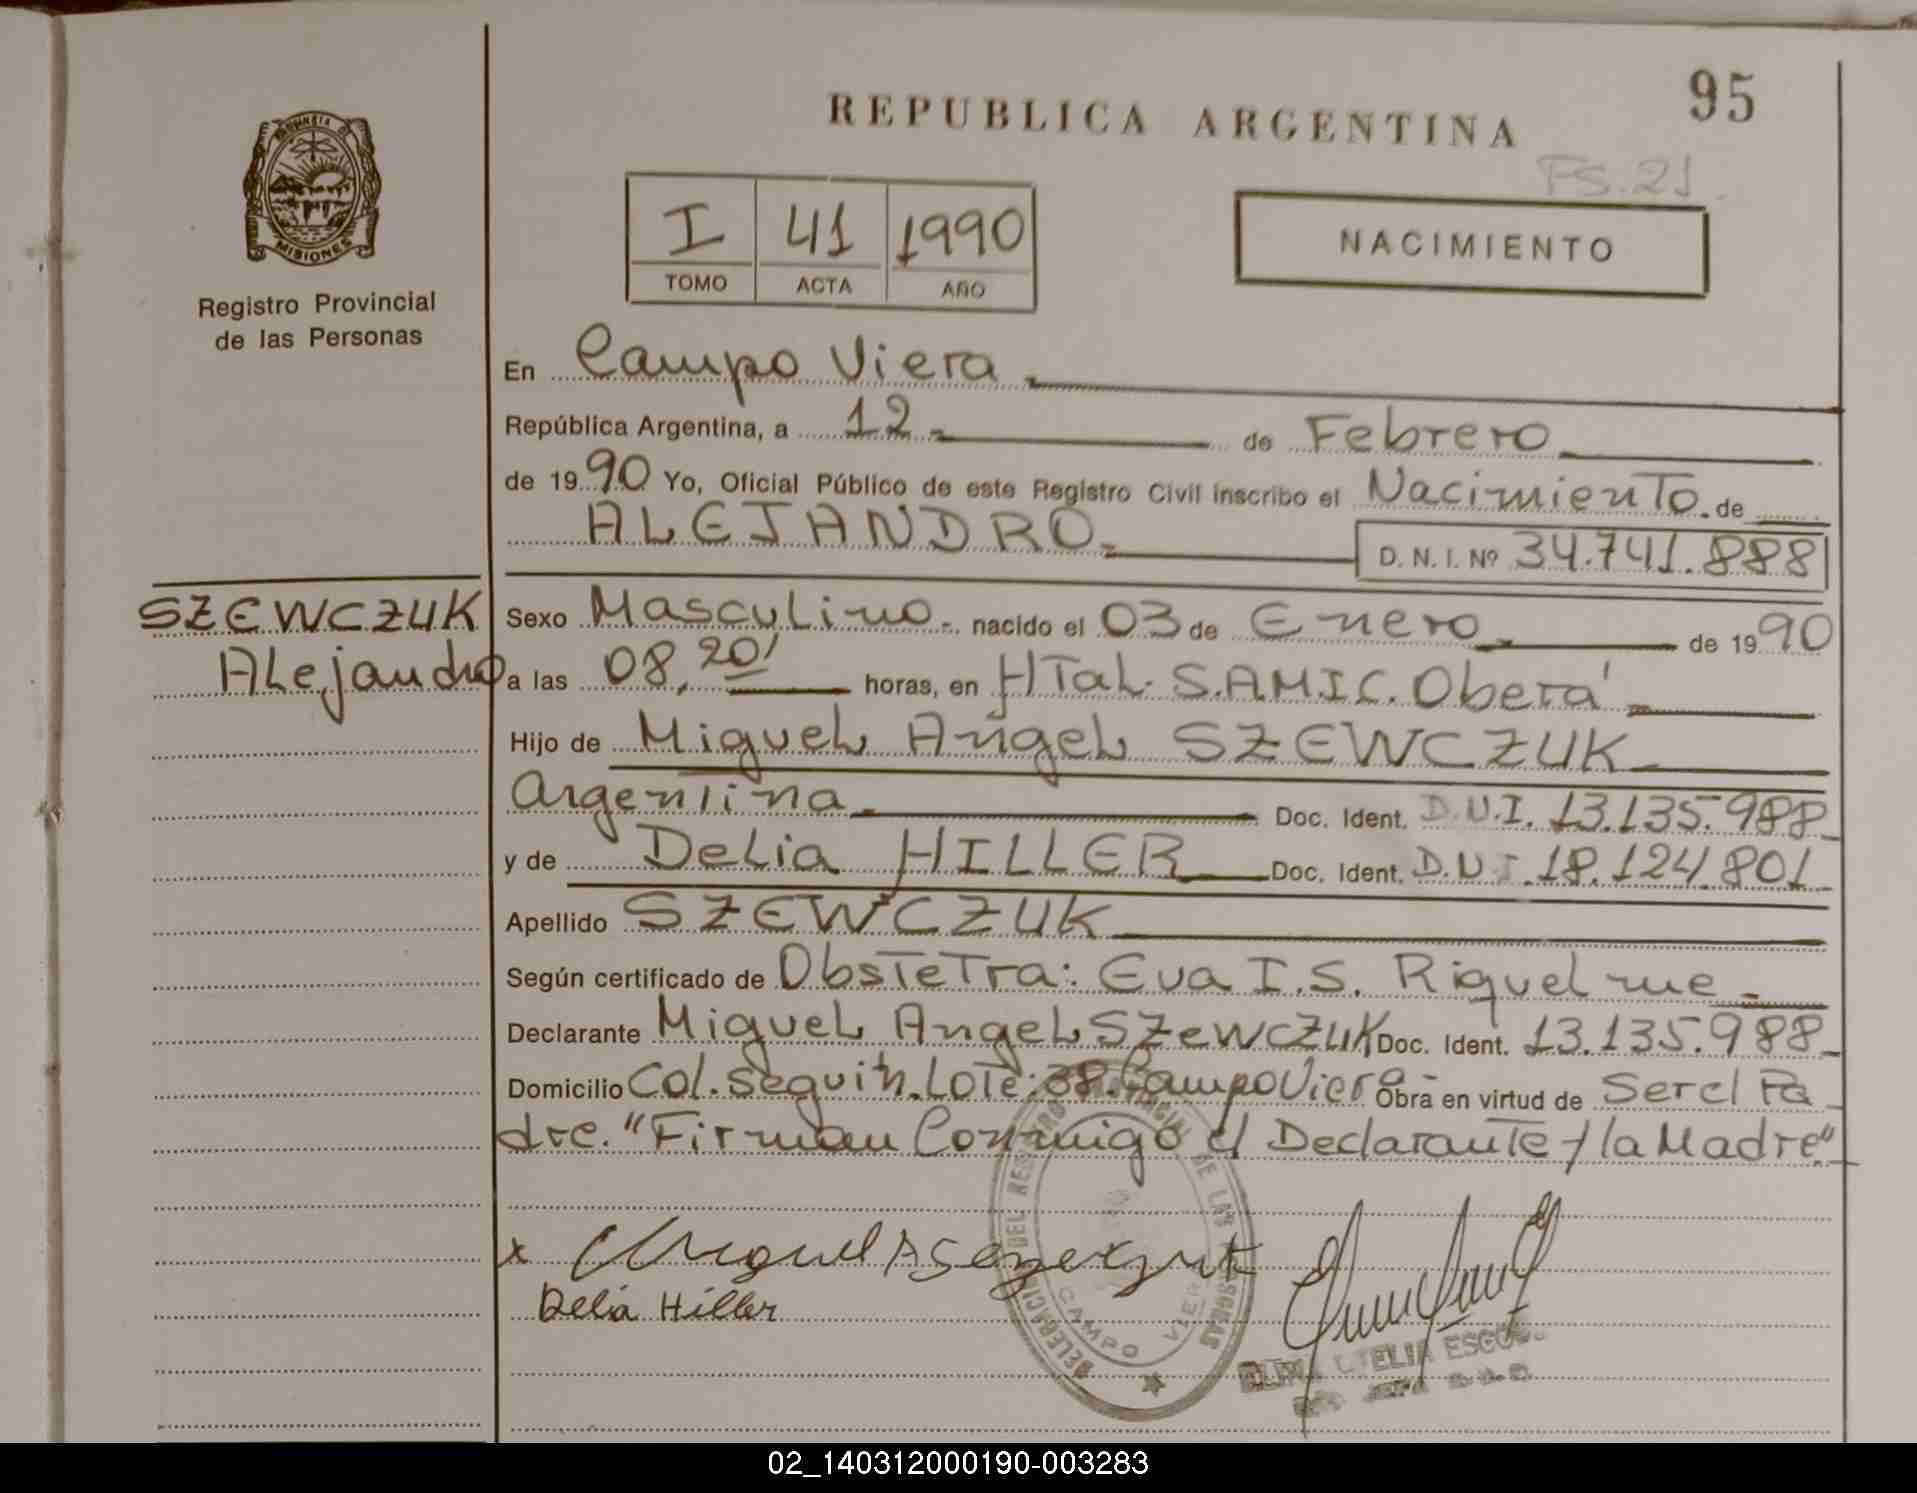 REPUBLICA ARGENTINA
95
FS. 21
PROVINCIA DE
MISIONES
Registro Provincial
de las Personas
I 41 1990
TOMO ACTA AÑO
NACIMIENTO
En Campo Viera
República Argentina, a 12 de Febrero
de 1990 Yo, Oficial Público de este Registro Civil inscribo el Nacimiento de
ALEJANDRO D. N. I. Nº 34.741.888
SZEWCZUK
Alejandro
Sexo Masculino nacido el 03 de Enero de 1990
a las 08,20' horas, en HTal. S.A.M.I.C. Oberá
Hijo de Miguel Angel SZEWCZUK
Argentina Doc. Ident. D.N.I. 13.135.988
y de Delia HILLER Doc. Ident. D.N.I. 18.124.801
Apellido SZEWCZUK
Según certificado de Obstetra: Eva I.S. Riquelme
Declarante Miguel Angel SZewcZuK Doc. Ident. 13.135.988
Domicilio Col. Seguín. Lote: 38. Campo Viera Obra en virtud de Ser el Pa
dre. "Firman Conmigo el Declarante y la Madre"
x Miguel A
Delia Hiller
DELEGACION DEL REGISTRO PROVINCIAL DE LAS PERSONAS
CAMPO VIERA
02_140312000190-003283